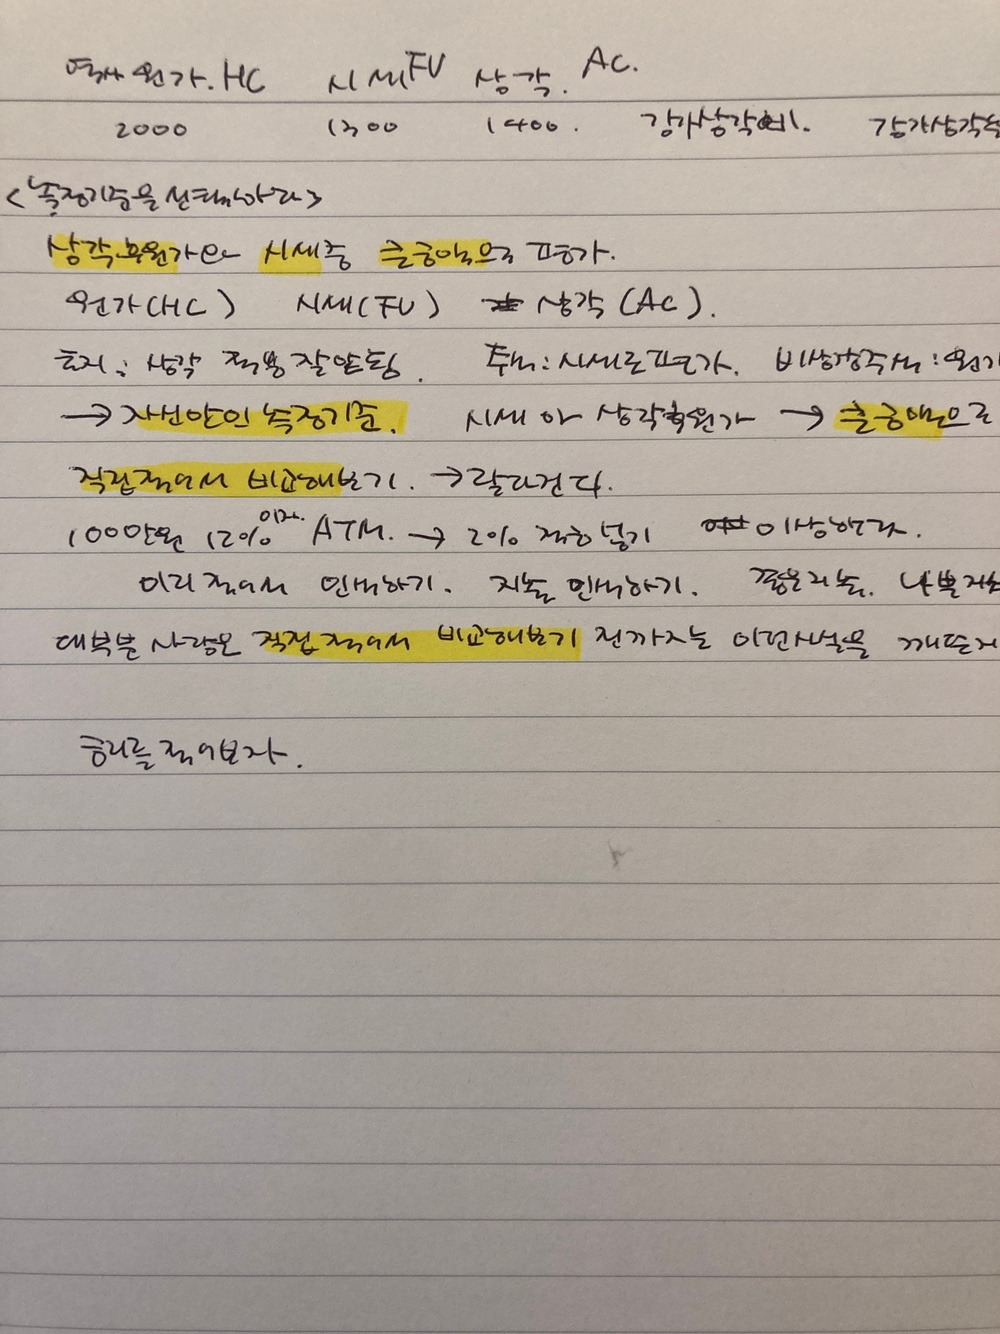 역사원가.HC 시세FV 상각. AC.
2000 1300 1400. 감가상각비. 감가상각
<측정기준을 선택하라>
상각후원가와 시세중 큰금액으로 평가.
원가(HC) 시세(FV) 상각(AC).
토지: 상각 적용 잘안됨. 주식:시세로평가. 비상장주식:원가
→ 자신만의 측정기준. 시세 와 상각후원가 → 큰금액으로
직접적어서 비교해보기. → 달라진다.
1000만원 12% 이자. ATM. → 2% 적혀있기 이상하다.
미리적어서 인식하기. 지출 인식하기. 좋은지출. 나쁜지출
대부분 사람은 직접적어서 비교해보기 전까지는 이런사실을 깨닫지
금리를 적어보자.